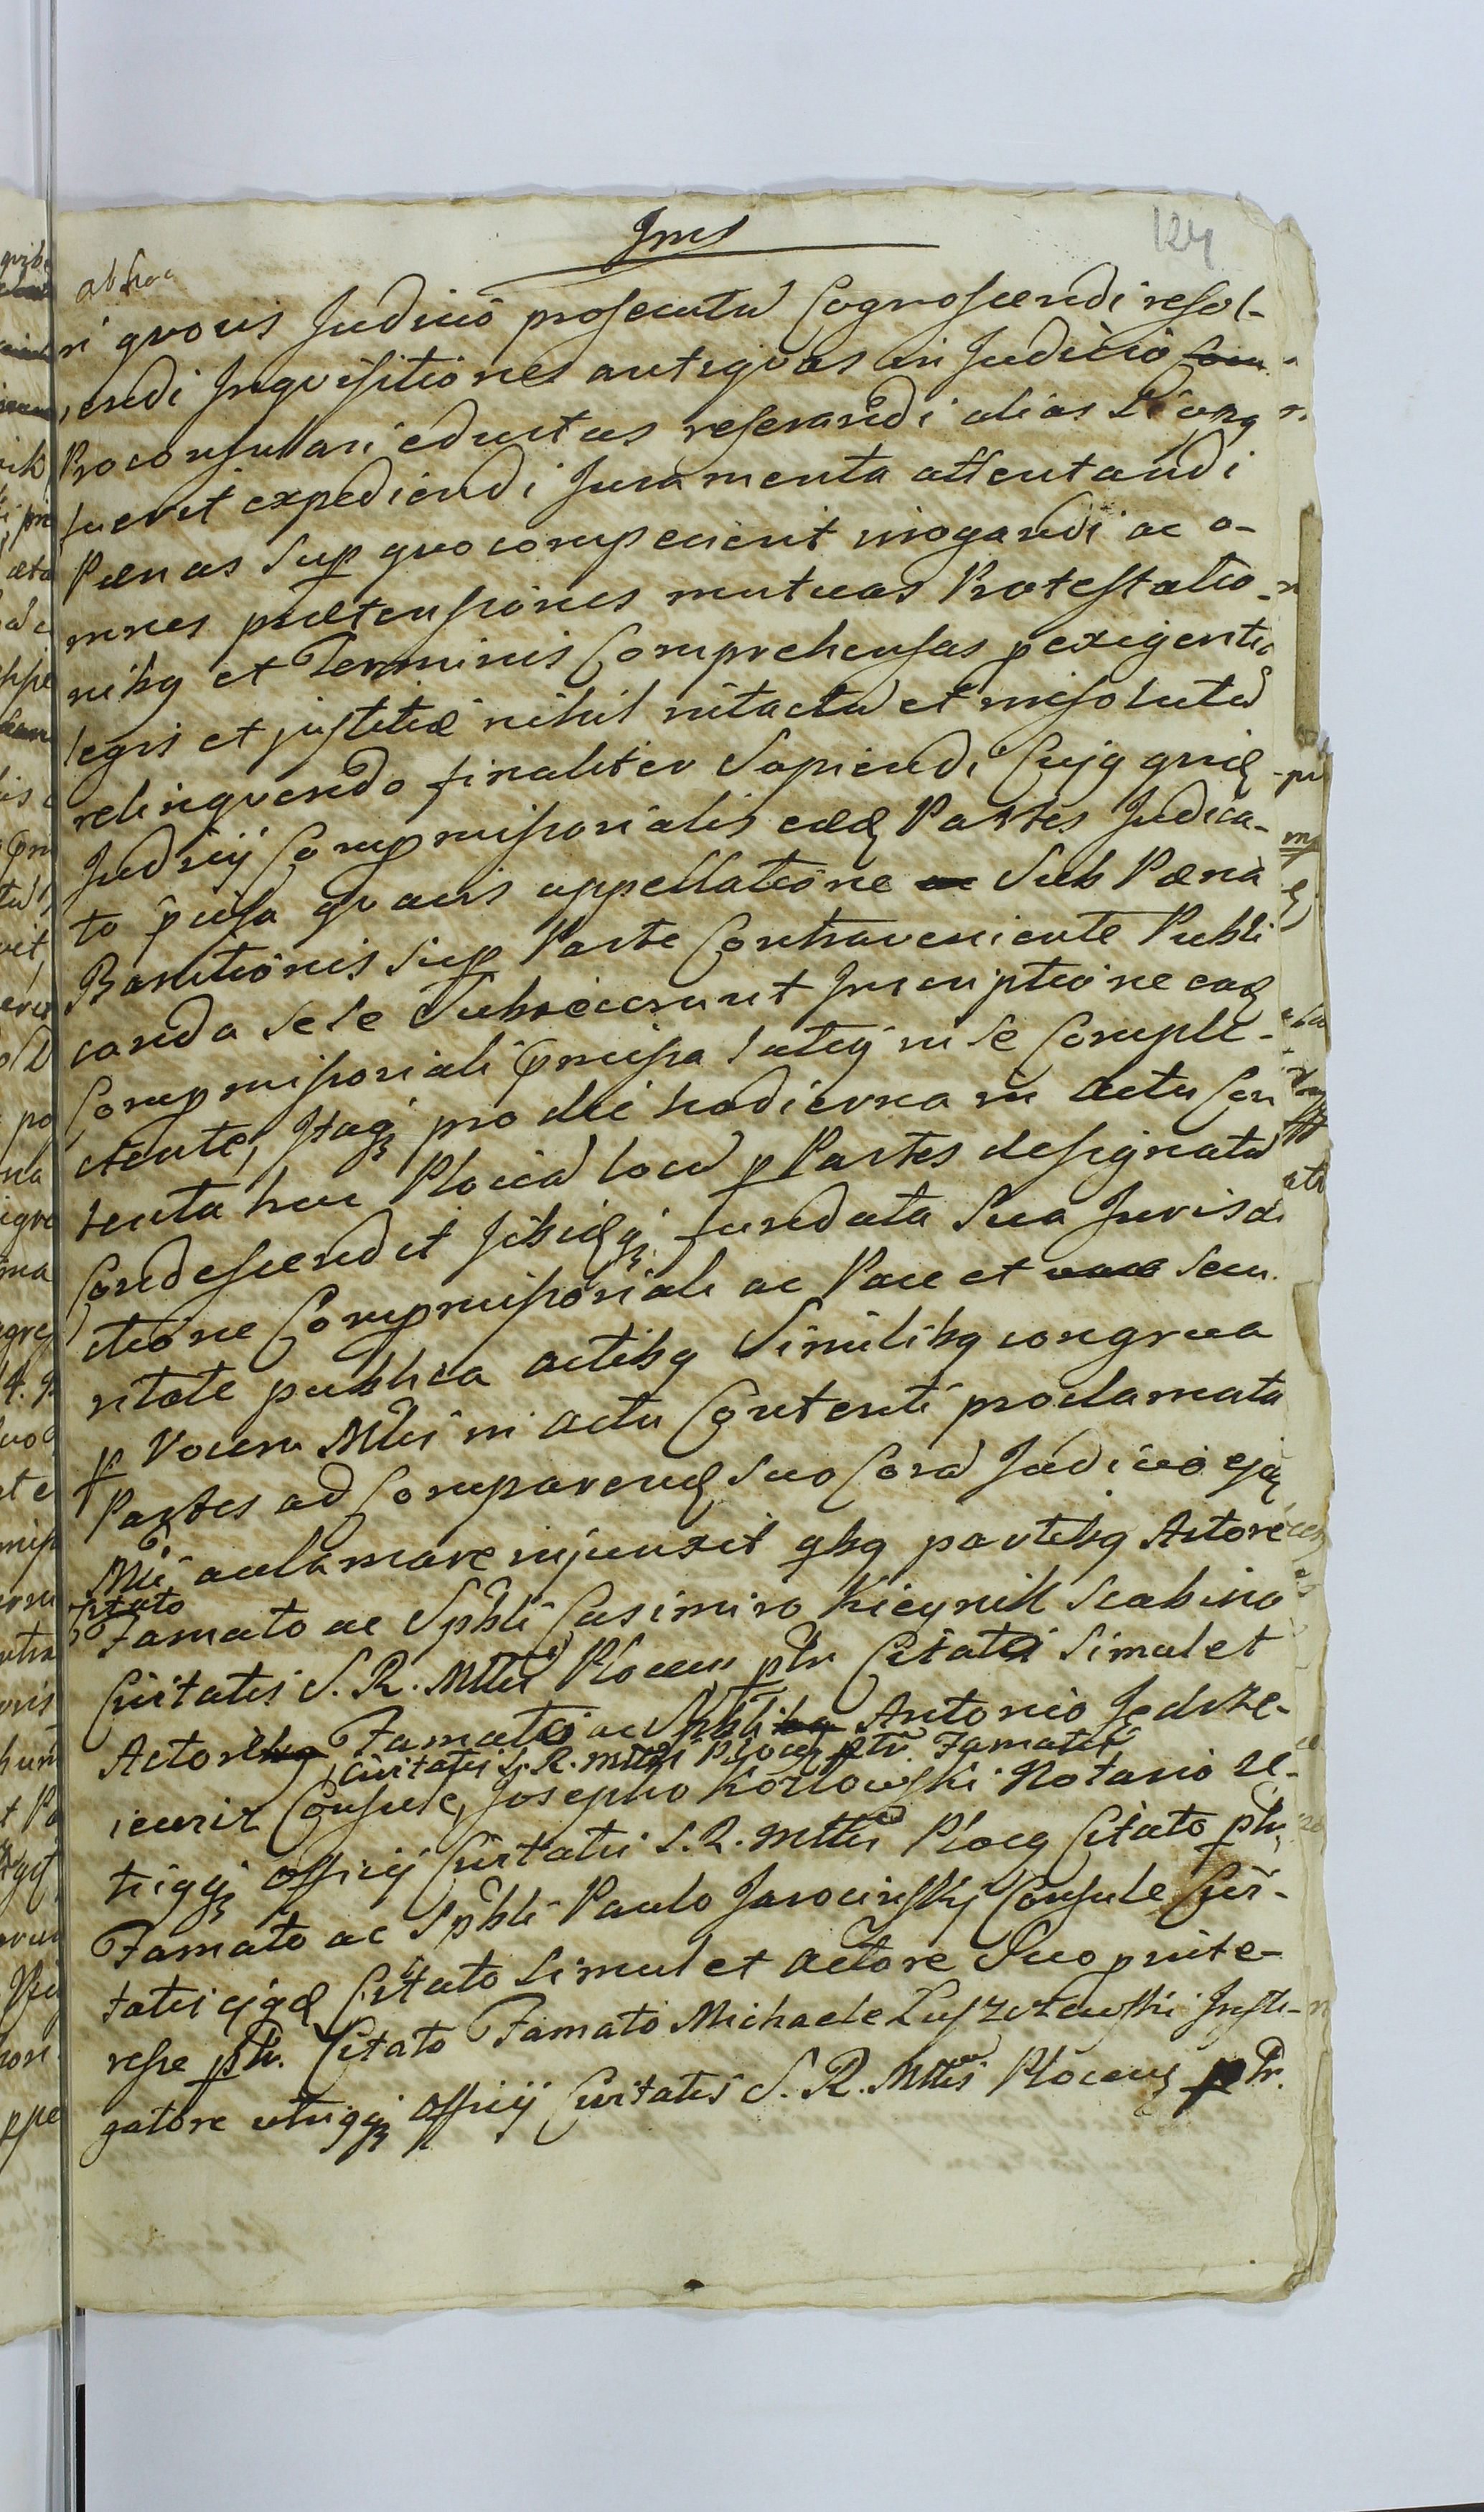 Jms
124
ri quovis Judicio prosecutũ Cognoscendi resol-
endi Inquisitiones antiquas in Judicio
Proconsulari eductas reserandi alias
fuerit expediendi Juramenta attentandi
Pænas Sup quo compecierit irrogandi ac o-
mnes prætensiones mutuas Protestatio-
nibq et Terminis Comprehensas p exigentia
legis et justitiæ nihil intactũ et irresolutũ
relinquendo finaliter Sopiendi Cujq
Judicij Compromissorialis Partes Judica-
to quavis appellatione Sub Pæna
Banitionis Sup Parte Contraveniente Publi
canda sese Subiecerunt Inscriptione
Compromissoriali Latiq in se Comple-
ctente, Itaq pro die hodierna in Actu Con
tenta huc Plociã locũ p Partes designatũ
Condescendit Ibidqꝫ fundata Sua Jurisdi
ctione Compromissoriali ac Pace et Secu
ritate publica actibq Similibq congrua
p Vocem Mlis in Actu Contenti proclamata
Partes ad Comparend Suo Corã Judicio
acclamare injunxit qbq partibq Actore
Ptato
Famato ac Spbli Casimiro Kicynik Scabino
Civitatis S. R. Mttis Plocen ptr Citato Simul et
Actore Famato ac Spbli Antonio Jedrze-
Civitatis S. R. Mttis Plocen ptr. Famato
iewicz Consule, Josepho Kozłowski Notario u-
triqqꝫ Officij Civitatis S. R. Mttis Plocq Citato ptr.
Famato ac Spbli Paulo Jarocinskij Consule Civi-
tatis ejqd Citato Simul et Actore Suo p inte-
resse ptr. Citato Famato Michaele Insti-
gatore utriqqꝫ Officij Civitatis S. R. Mttis Plocens ptr.